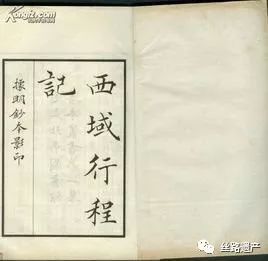 西域行程
記
據明鈔本影印
丝路遗产